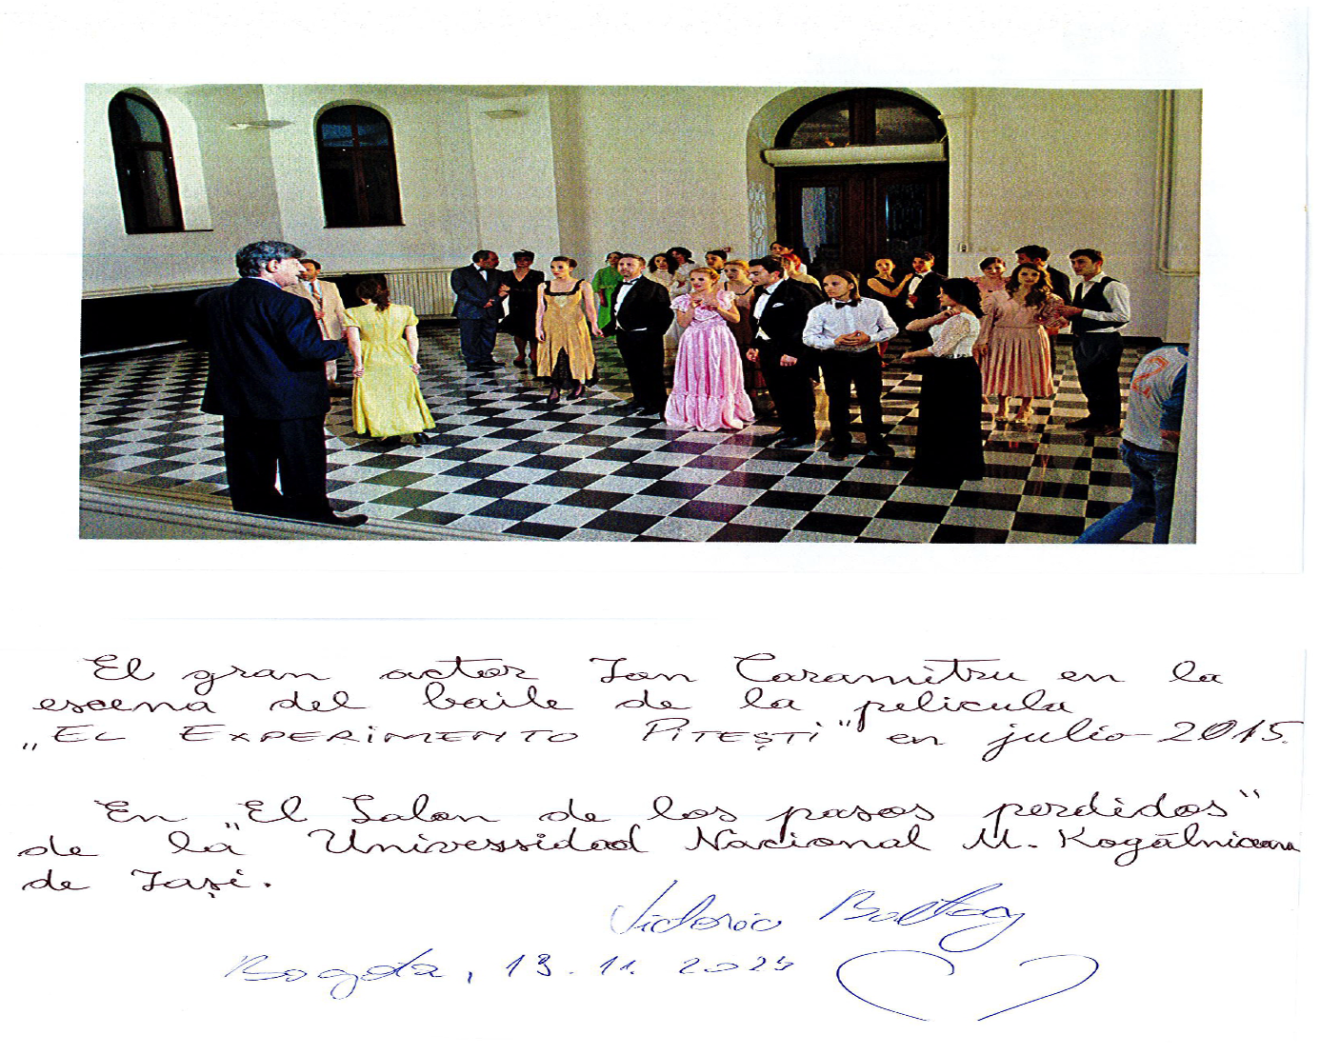 El gran actor Ion Caramitru en la
escena del baile de la pelicula
„EL EXPERIMENTO PITEȘTI" en julio 2015.
En „El Salon de los pasos perdidos"
de la Universidad Nacional M. Kogălniceanu
de Iași.
Victoria Baltag
Bogota, 13.11.2024
2